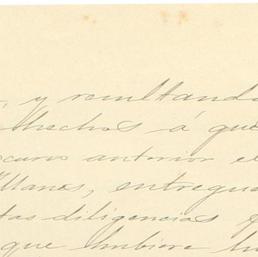 , y resultando
hechos á que
anterior e
Illanes, entregue
tas diligencias q
que hubiere